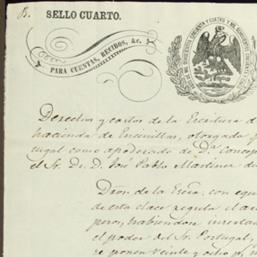 B. SELLO CUARTO.
PARA CUENTAS, RECIBOS, &c.
Derechos y costos de la Escritura d
hacienda de Encinillas, otorgada p
tugal como apoderado de Da. Concep
el Sr. Dr. D. José Pablo Martinez d
Dros. de la Escra. con
de esta clase regula el
pero, habiendose
el poder del Sr. Portugal,
se ponen veinte y ocho ps.